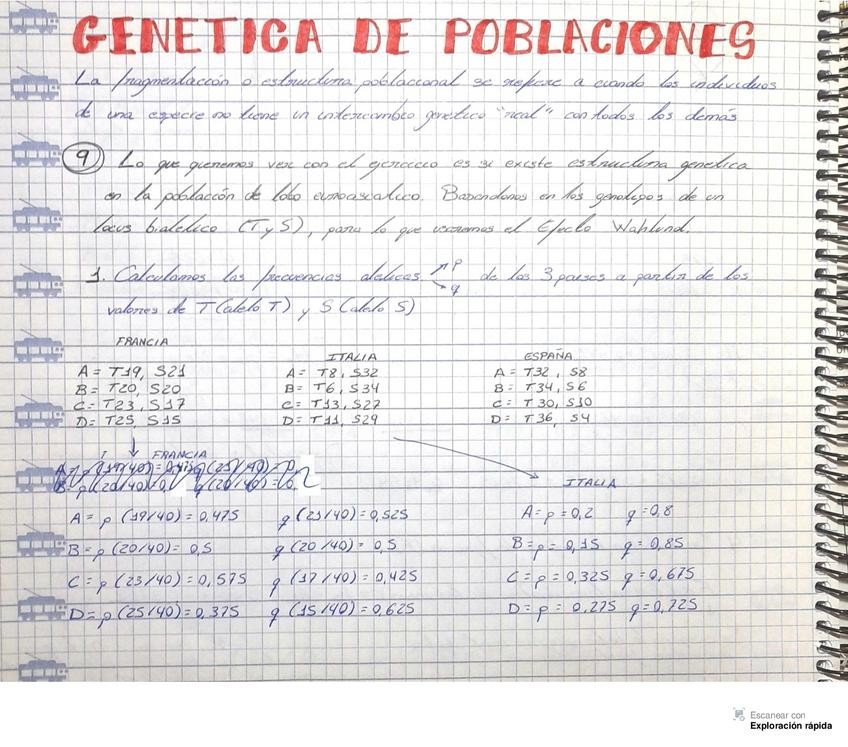 GENETICA DE POBLACIONES
La fragmentación o estructura poblacional se refiere a cuando los individuos
de una especie no tiene un intercambio genetico "real" con todos los demás
9 Lo que queremos ver con el ejercicio es si existe estructura genetica
en la población de lobo euroasiatico. Basandonos en los genotipos de un
locus bialelico (T y S), para lo que usaremos el Efecto Wahlund.
1. Calculamos las frecuencias alelicas ↗ p ↘ q de los 3 paises a partir de los
valores de T (alelo T) y S (alelo S)
FRANCIA
ITALIA
ESPAÑA
A = T19, S21
A = T8, S32
A = T32, S8
B = T20, S20
B = T6, S34
B = T34, S6
C = T23, S17
C = T13, S27
C = T30, S10
D = T25, S15
D = T11, S29
D = T36, S4
FRANCIA
ITALIA
A = p (19/40) = 0,475 q (21/40) = 0,525
A = p = 0,2 q = 0,8
B = p (20/40) = 0,5 q (20/40) = 0,5
B = p = 0,15 q = 0,85
C = p (23/40) = 0,575 q (17/40) = 0,425
C = p = 0,325 q = 0,675
D = p (25/40) = 0,375 q (15/40) = 0,625
D = p = 0,275 q = 0,725
Escanear con
Exploración rápida